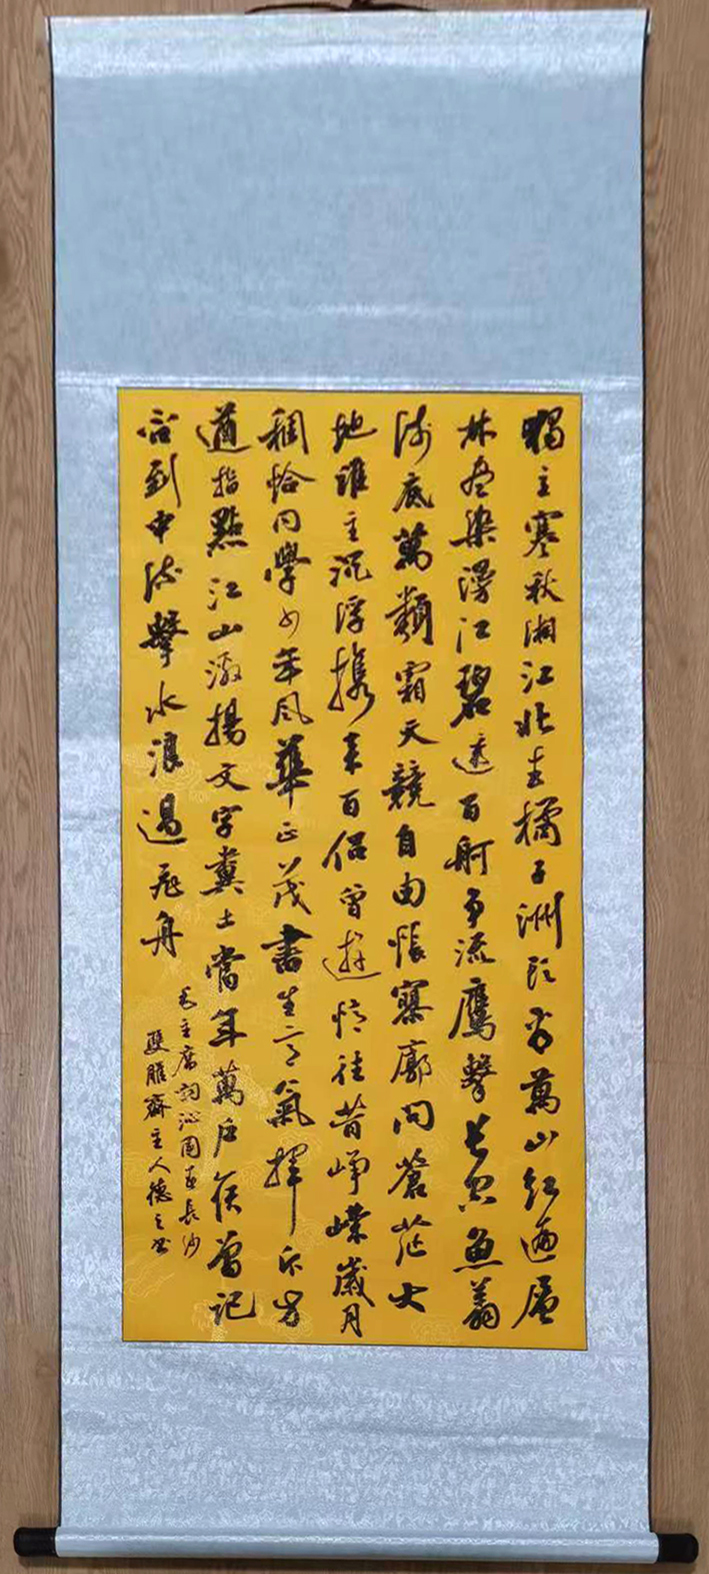 獨立寒秋湘江北去橘子洲頭看萬山紅遍層
林盡染漫江碧透百舸爭流鷹擊長空魚翔
淺底萬類霜天競自由悵寥廓問蒼茫大
地誰主沉浮携來百侶曾遊憶往昔崢嶸歲月
稠恰同學少年風華正茂書生意氣揮斥方
遒指點江山激揚文字糞土當年萬户侯曾記
否到中流擊水浪遏飛舟
毛主席詞沁園春長沙
齋主人德之書